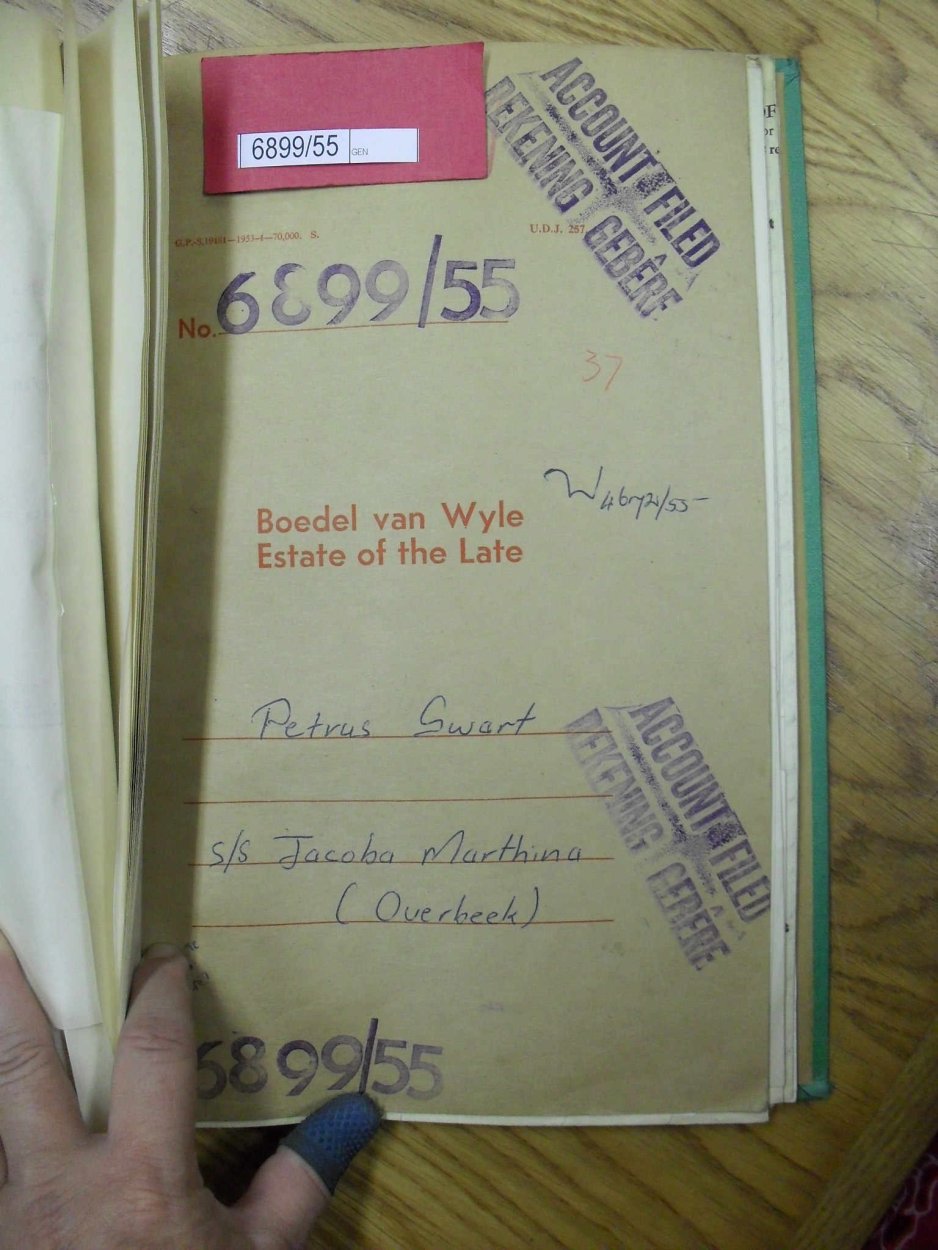 6899/55 GEN
ACCOUNT FILED
REKENING GEBÊRE
G.P.-S.19481—1953-4—70,000. S.
U.D.J. 257
No. 6899/55
37
Boedel van Wyle
Estate of the Late
Petrus Swart
s/s Jacoba Marthina
(Overbeek)
ACCOUNT FILED
REKENING GEBÊRE
6899/55